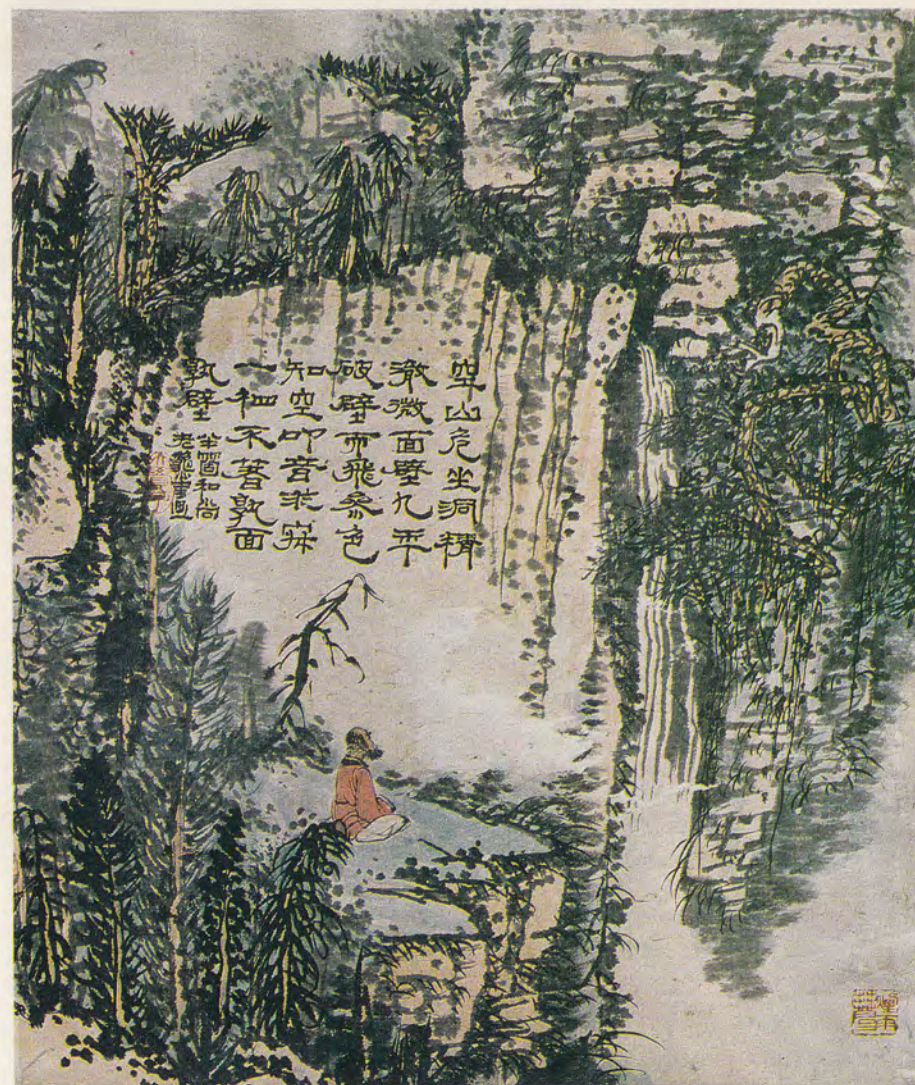 空山危坐洞精
澈微面壁九年
破壁而飛參色
知空叩音求寂
一不著孰面
孰壁
和尚